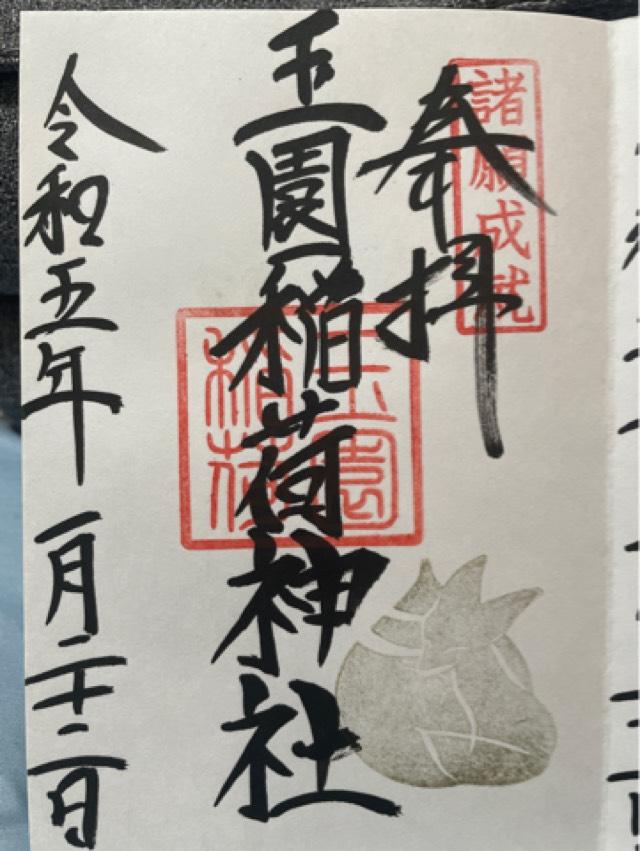 諸願成就
奉拝
玉園稲荷神社
玉園
稲荷
令和五年 一月二十二日